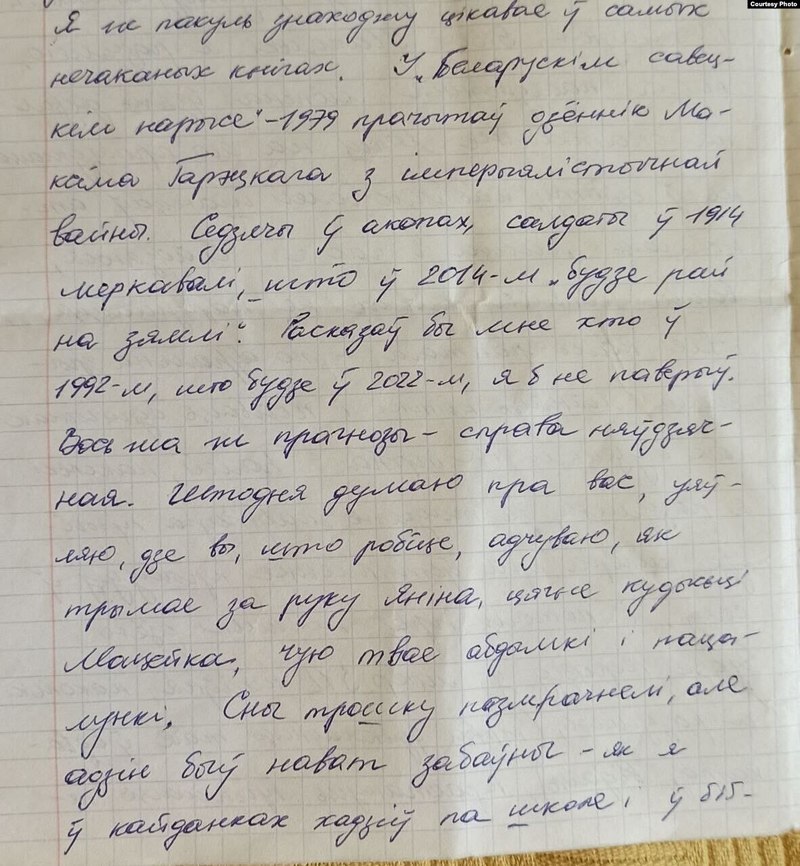 Courtesy Photo
Я ж пакуль знаходжу цікавае ў самых
нечаканых кнігах. У „Беларускім савец-
кім нарысе“-1979 прачытаў дзённік Ма-
ксіма Гарэцкага з імперыялістычнай
вайны. Седзячы ў акопах, салдаты ў 1914
меркавалі, што ў 2014-м „будзе рай
на зямлі“. Расказаў бы мне хто ў
1992-м, што будзе ў 2022-м, я б не паверыў.
Вось жа ж прагнозы – справа няўдзяч-
ная. Штодня думаю пра вас, уяў-
ляю, дзе вы, што робіце, адчуваю, як
трымае за руку Яніна, цягне кудысьці
Мацейка, чую твае абдымкі і паца-
лункі. Сны трошку пазмрачнелі, але
адзін быў нават забаўны – як я
ў кайданках хадзіў па школе і ў біб-